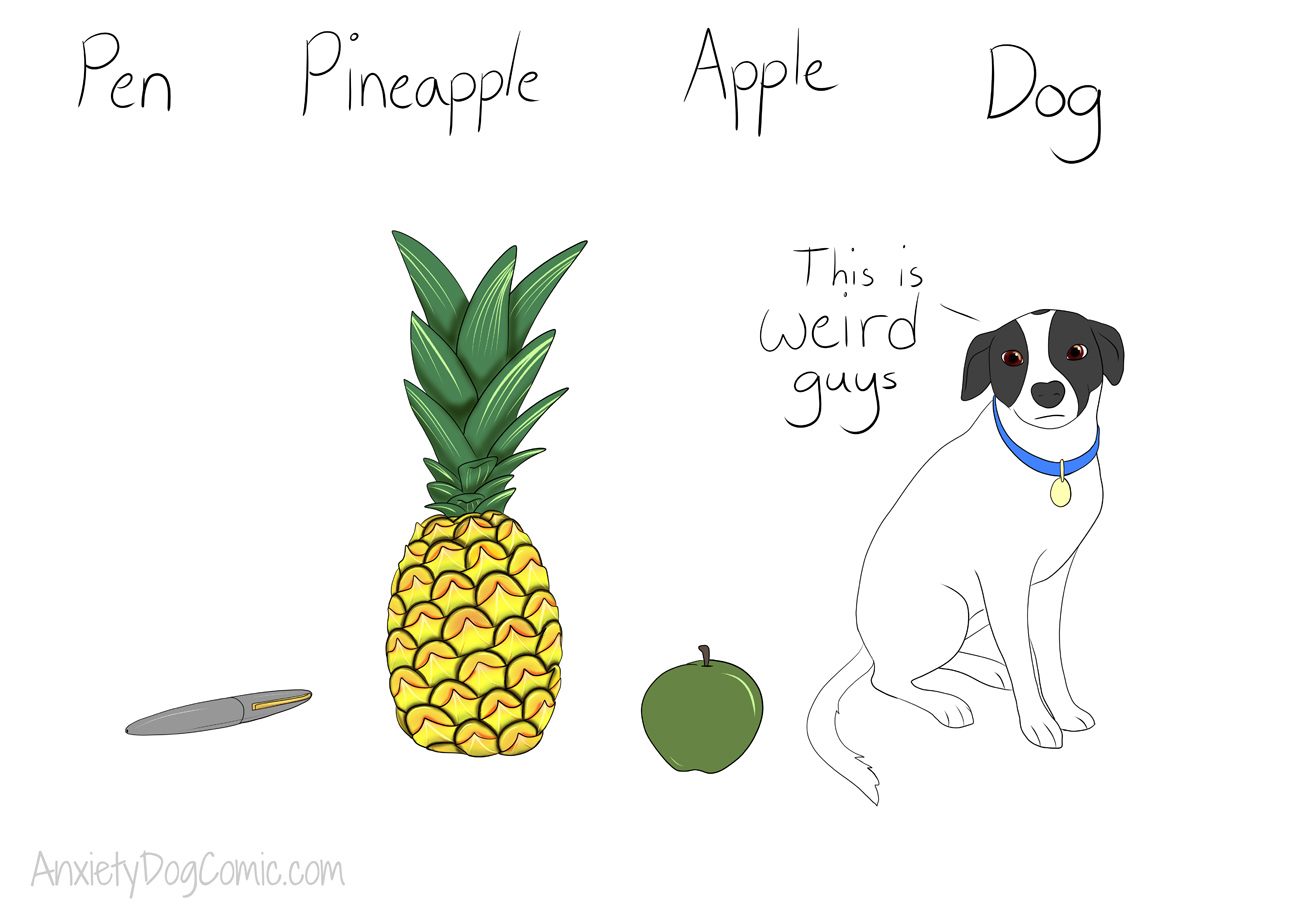 Pen Pineapple Apple Dog
This is
weird
guys
AnxietyDogComic.com